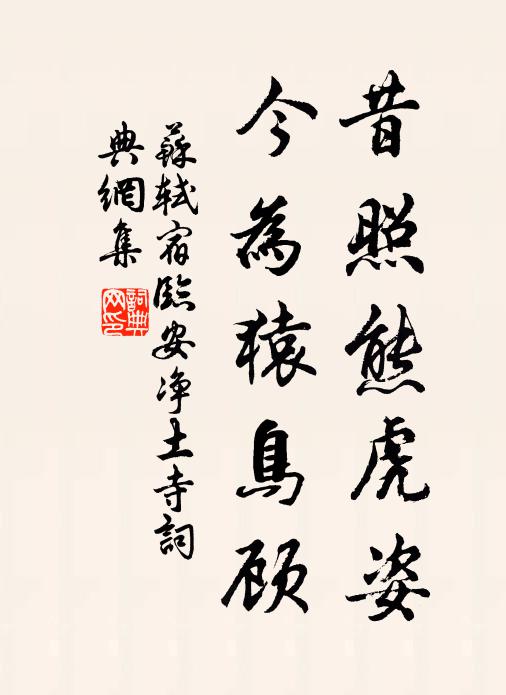 昔照熊虎姿
今為猿鳥顾
蘇軾宿臨安净土寺詞
典網集
詞典
网印